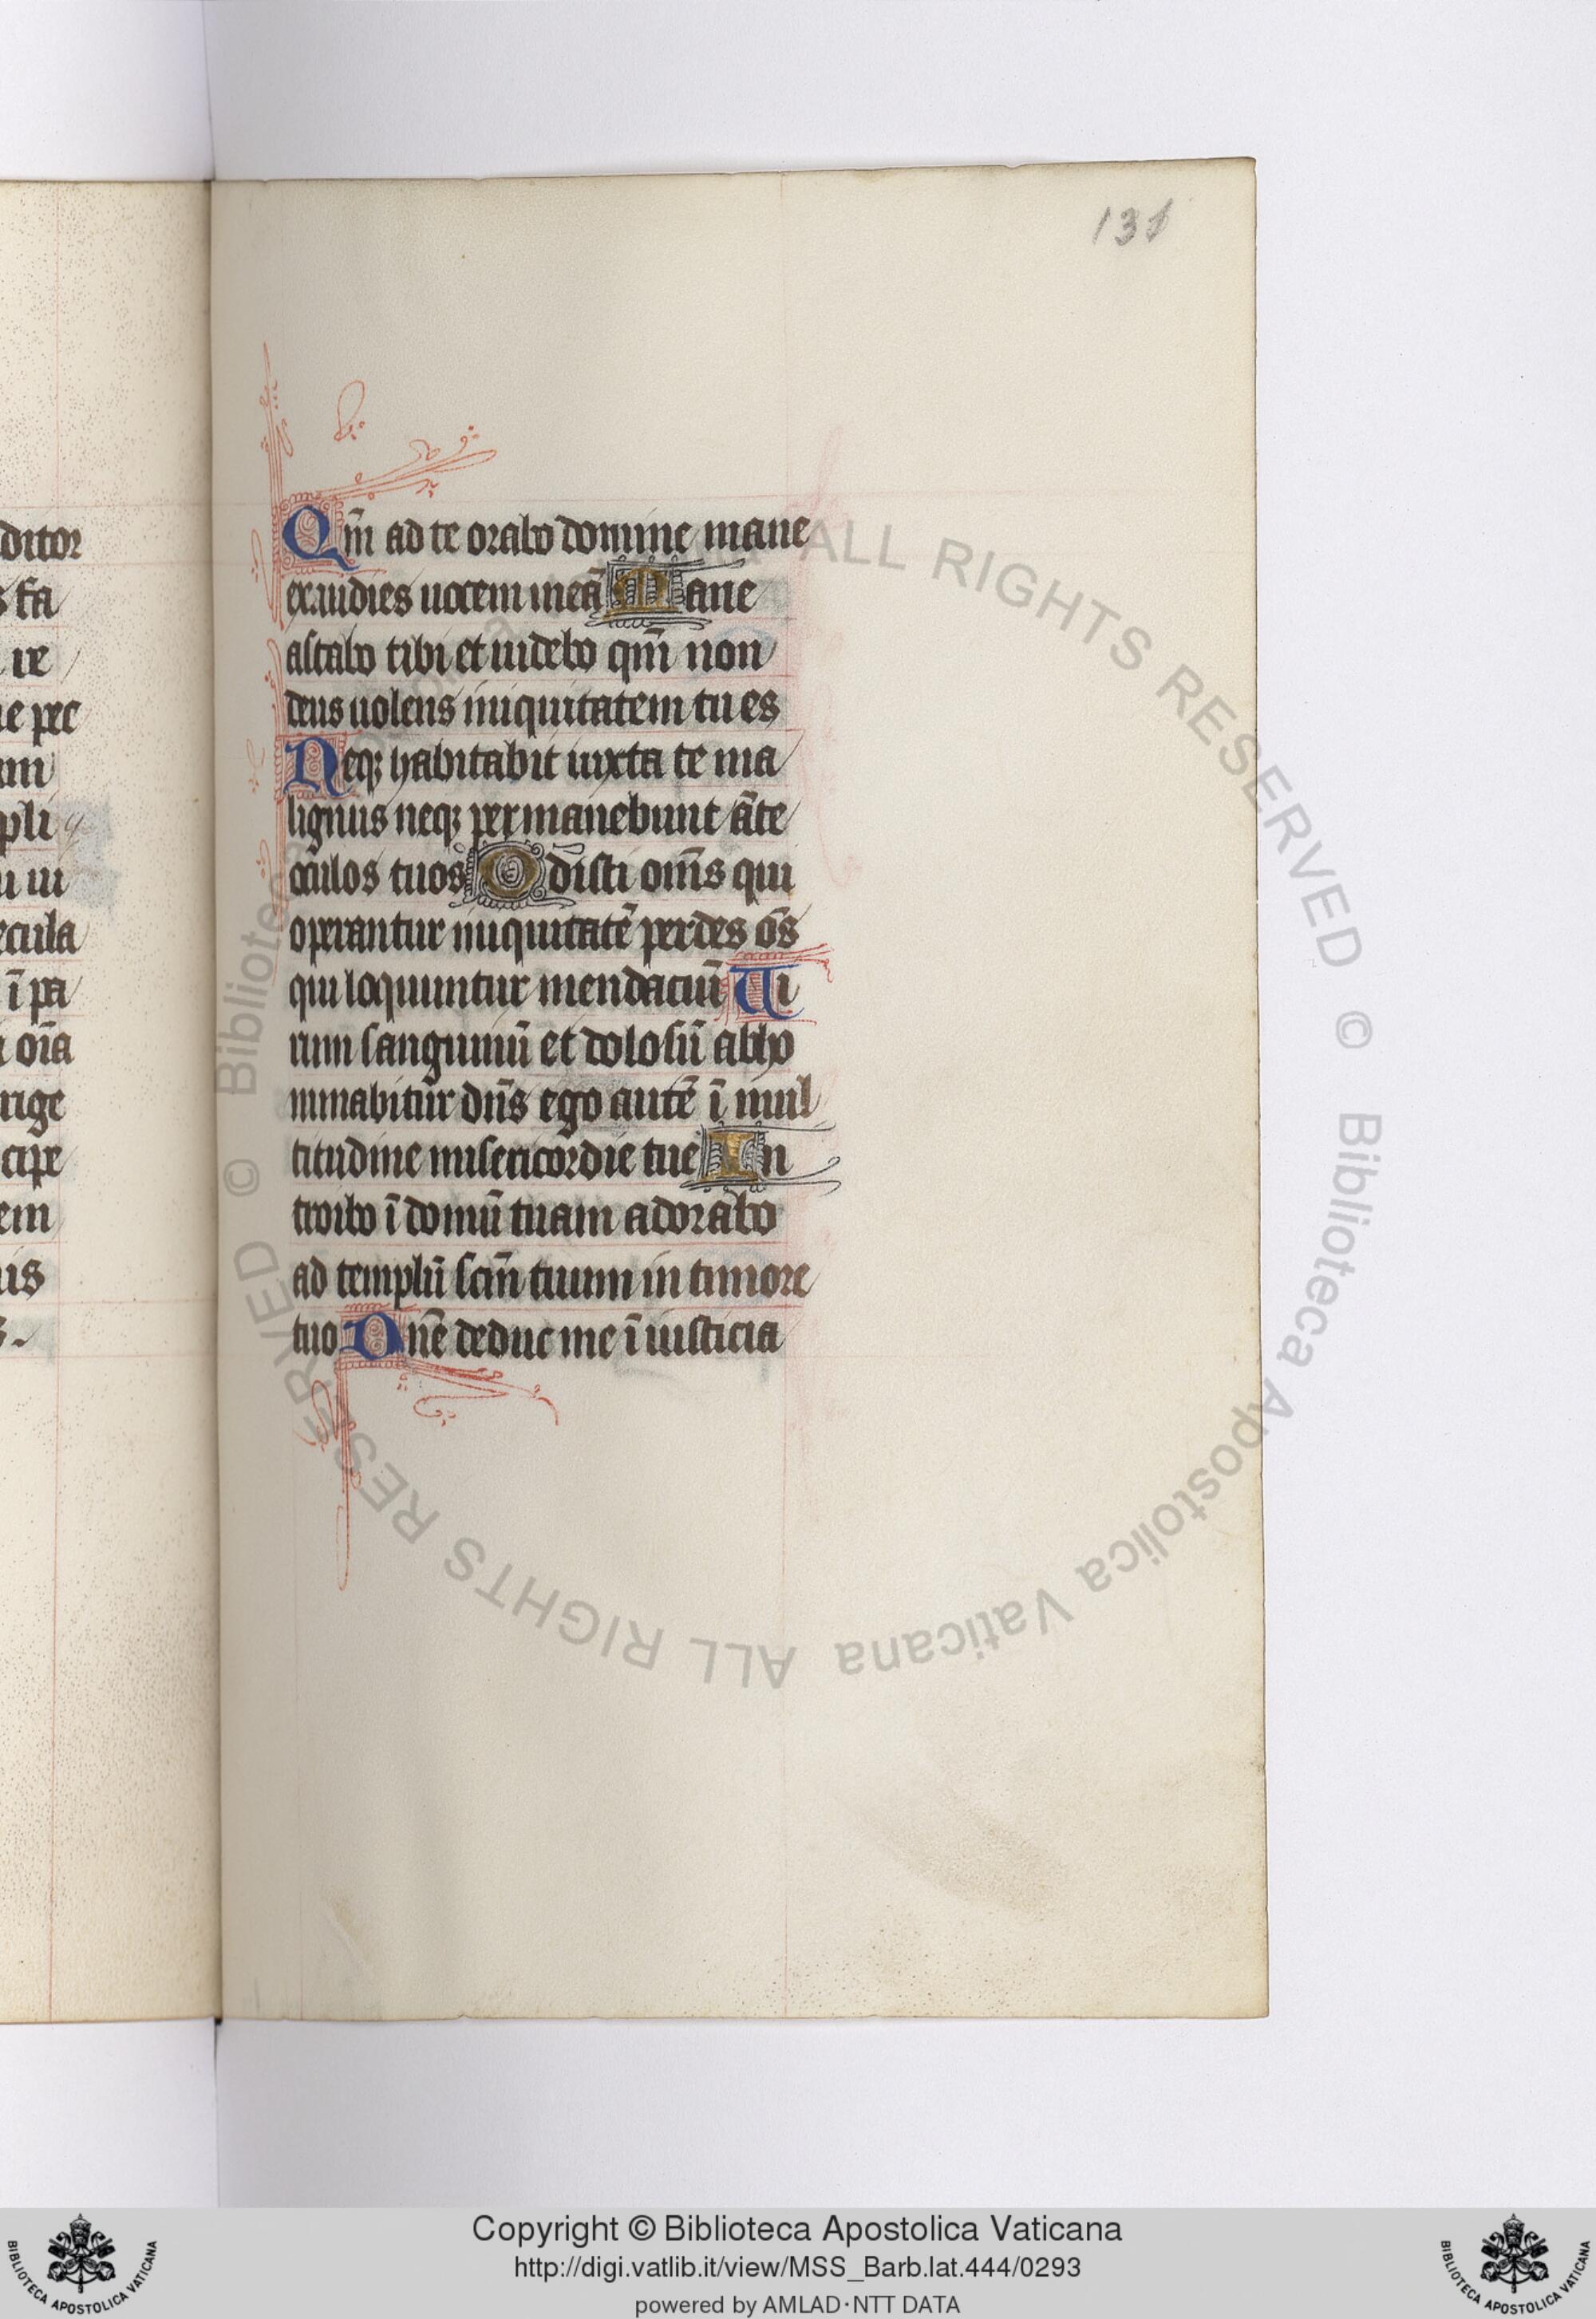 131
ditor
s fa
re
ue pec
um
pli
u iu
ecula
ī pa
oīa
rige
cipe
em
us
Qm̄ ad te orabo domine mane
exaudies uocem meā Mane
astabo tibi et uidebo qm̄ non
deus uolens iniquitatem tu es
Neqꝫ habitabit iuxta te ma
lignus neqꝫ permanebunt āte
oculos tuos Odisti om̄s qui
operantur iniquitatē perdes ōs
qui loquuntur mendaciū Ui
rum sanguinū et dolosū abho
minabitur dn̄s ego autē ī mul
titudine misericordie tue In
troibo ī domū tuam adorabo
ad templū scm̄ tuum in timore
tuo Dn̄e deduc me ī iusticia
ALL RIGHTS RESERVED © Biblioteca Apostolica Vaticana ALL RIGHTS RESERVED © Biblioteca
Copyright © Biblioteca Apostolica Vaticana
http://digi.vatlib.it/view/MSS_Barb.lat.444/0293
powered by AMLAD·NTT DATA
BIBLIOTECA APOSTOLICA VATICANA
BIBLIOTECA APOSTOLICA VATICANA